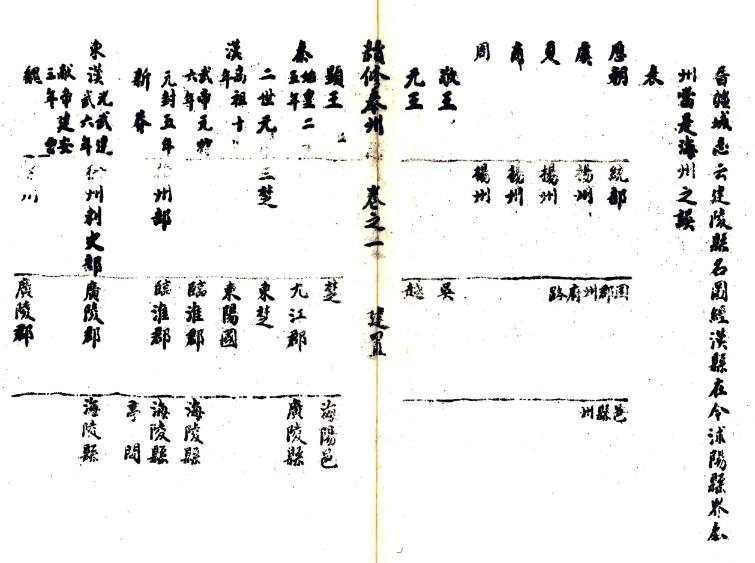 晉疆域志云建陵縣名圖經漢縣在今沭陽縣界泰
州當是海州之誤
表
歷朝 統部 國郡州府路 邑縣州
虞 揚州
夏 揚州
商 揚州
周 揚州
敬王 吳
元王 越
續修泰州志 卷之一 建置
顯王 楚 海陽邑
秦始皇二五年 九江郡 廣陵縣
二世元 三楚 東楚
漢高祖十年 東陽國
武帝元狩六年 臨淮郡 海陵縣
元封五年 徐州部 臨淮郡 海陵縣
新莽 亭間
東漢光武建武六年 徐州刺史部 廣陵郡 海陵縣
獻帝建安三年
魏 徐州 廣陵郡